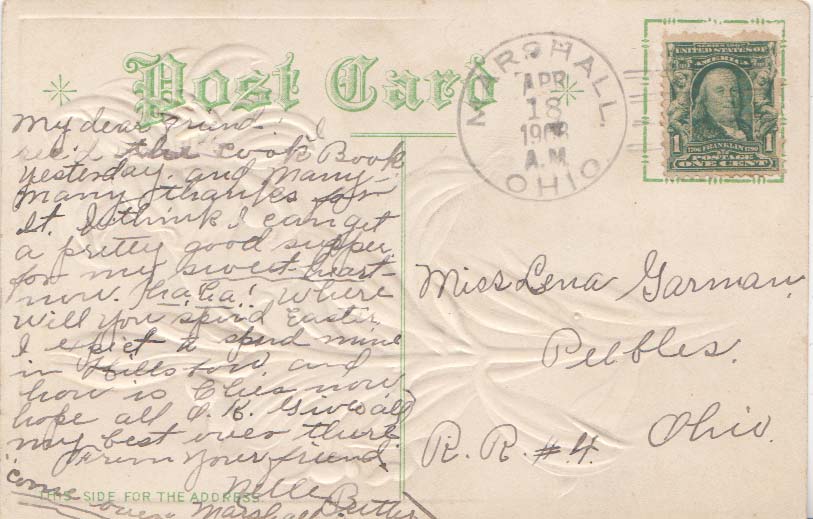 Post Card
MARSHALL.
APR
18
1908
A.M
OHIO
SERIES 1902
UNITED STATES OF
AMERICA
1706 FRANKLIN 1790
1 POSTAGE 1
ONE CENT
My dear Friend. I
rec. the Cook Book
yesterday. and many
many thanks for
It. I think I can get
a pretty good supper
for my sweet-heart
now. ha! ha! Where
will you spend Easter
I expect to spend mine
in Hillsboro, and
how is now
hope all O.K. Give all
my best over there.
From your friend
Nelle Butler
Marshall.
"come over
THIS SIDE FOR THE ADDRESS.
Miss Lena Garman,
Peebles.
Ohio.
R. R. #4.